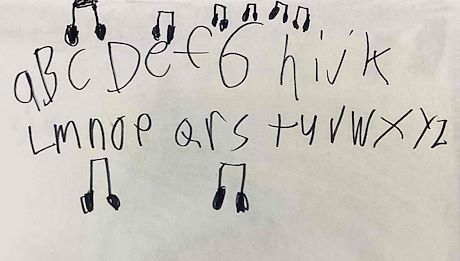 aBC Def G hijk
Lmnop QrS tuvwxyz